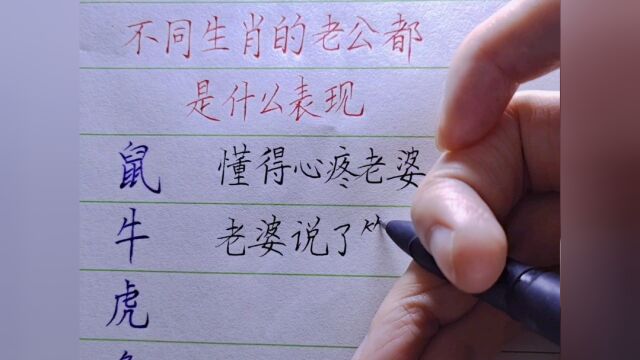 不同生肖的老公都
是什么表现
鼠 懂得心疼老婆
牛 老婆说了
虎